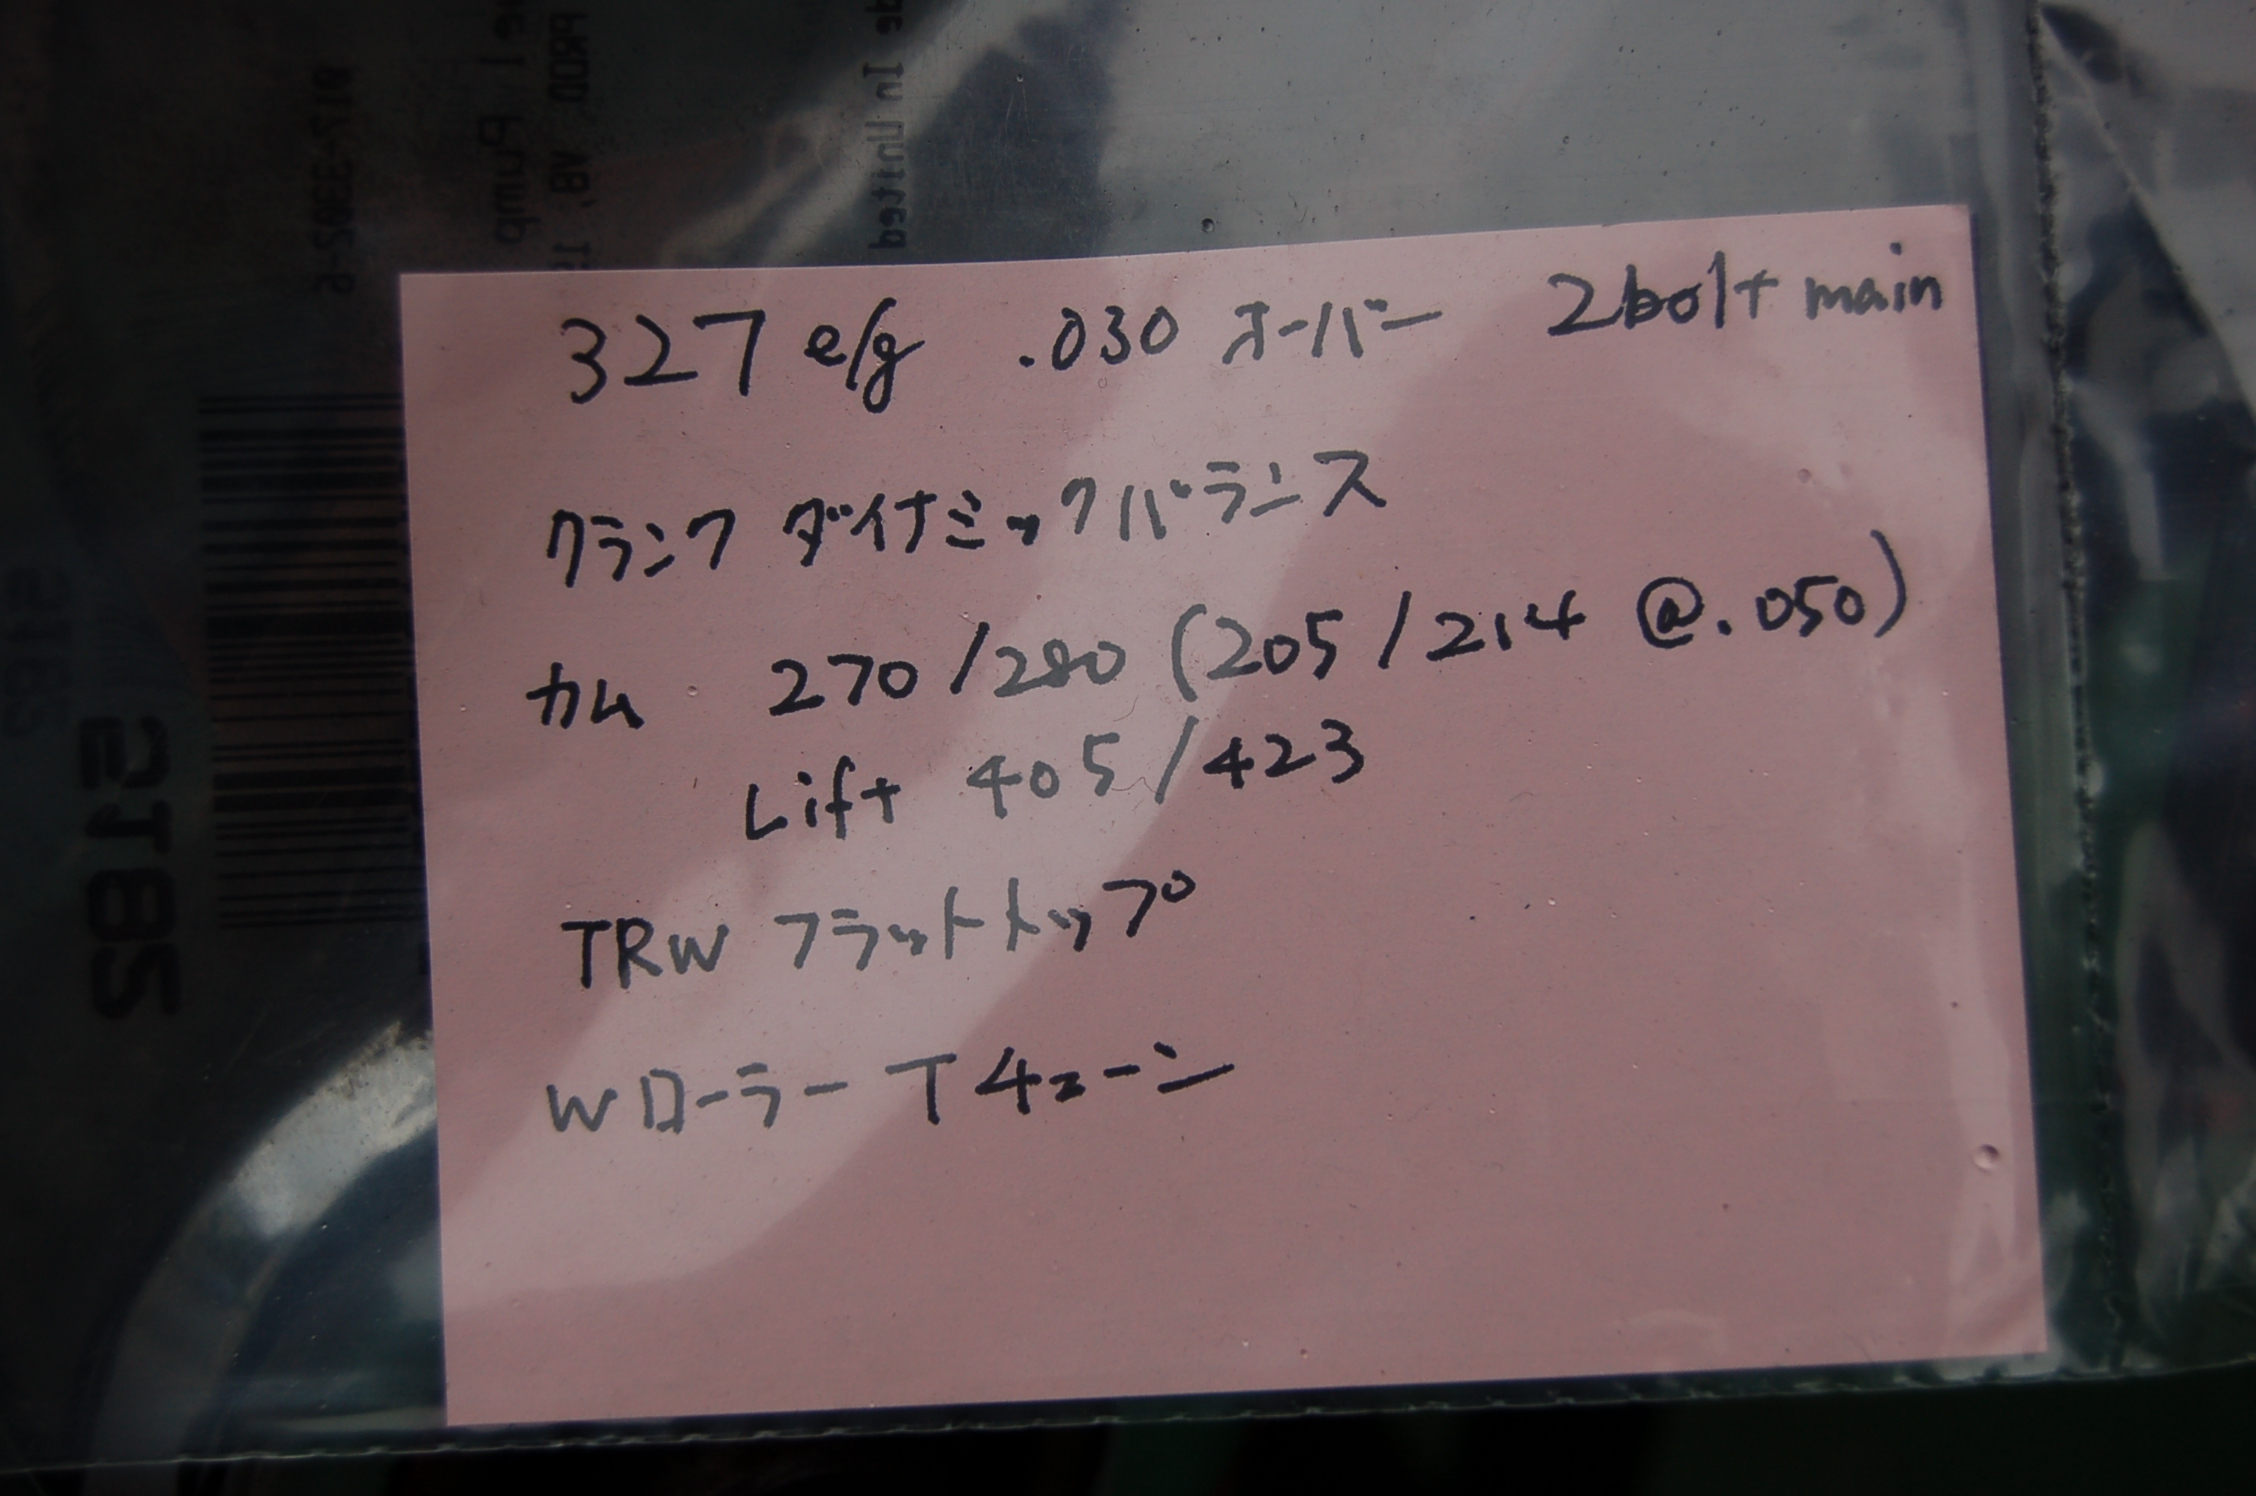 327 e/g .030 オーバー 2bolt main
クランク ダイナミックバランス
カム 270/280 (205/214 @.050)
Lift 405/423
TRW フラットトップ
Wローラー Tチェーン
de In United
PROD V8, 15
el Pump
917-3302-6
2182